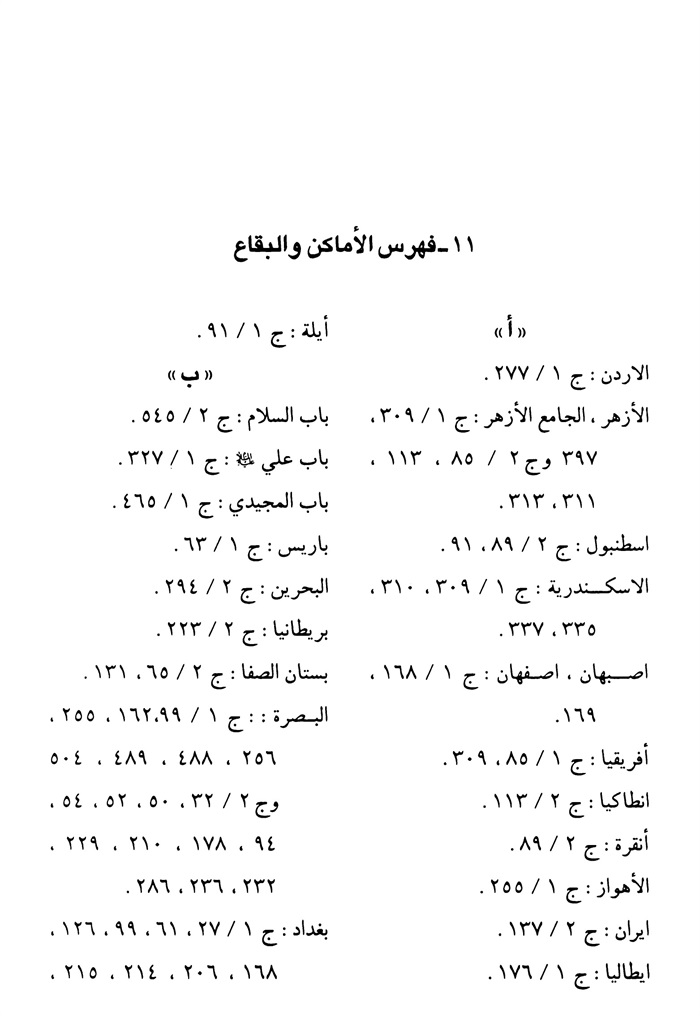 ١١ ـ فهرس الأماكن والبقاع
« أ »
الاردن : ج ١ / ٢٧٧ .
الأزهر ، الجامع الأزهر : ج ١ / ٣٠٩ ،
٣٩٧ وج ٢ / ٨٥ ، ١١٣ ،
٣١١ ، ٣١٣ .
اسطنبول : ج ٢ / ٨٩ ، ٩١ .
الاسكـــندرية : ج ١ / ٣٠٩ ، ٣١٠ ،
٣٣٥ ، ٣٣٧ .
اصـــبهان ، اصـفهان : ج ١ / ١٦٨ ،
١٦٩.
أفريقيا : ج ١ / ٨٥ ، ٣٠٩ .
انطاكيا : ج ٢ / ١١٣ .
أنقرة : ج ٢ / ٨٩ .
الأهواز : ج ١ / ٢٥٥ .
ايران : ج ٢ / ١٣٧ .
ايطاليا : ج ١ / ١٧٦ .
أيلة : ج ١ / ٩١ .
« ب »
باب السلام : ج ٢ / ٥٤٥ .
باب علي ﷺ : ج ١ / ٣٢٧ .
باب المجيدي : ج ١ / ٤٦٥ .
باريس : ج ١ / ٦٣ .
البحرين : ج ٢ / ٢٩٤ .
بريطانيا : ج ٢ / ٢٢٣ .
بستان الصفا : ج ٢ / ٦٥ ، ١٣١ .
البـصرة : : ج ١ / ٩٩،١٦٢ ، ٢٥٥ ،
٢٥٦ ، ٤٨٨ ، ٤٨٩ ، ٥٠٤
وج ٢ / ٣٢ ، ٥٠ ، ٥٢ ، ٥٤ ،
٩٤ ، ١٧٨ ، ٢١٠ ، ٢٢٩ ،
٢٣٢ ، ٢٣٦ ، ٢٨٦ .
بغداد : ج ١ / ٢٧ ، ٦١ ، ٩٩ ، ١٢٦ ،
١٦٨ ، ٢٠٦ ، ٢١٤ ، ٢١٥ ،